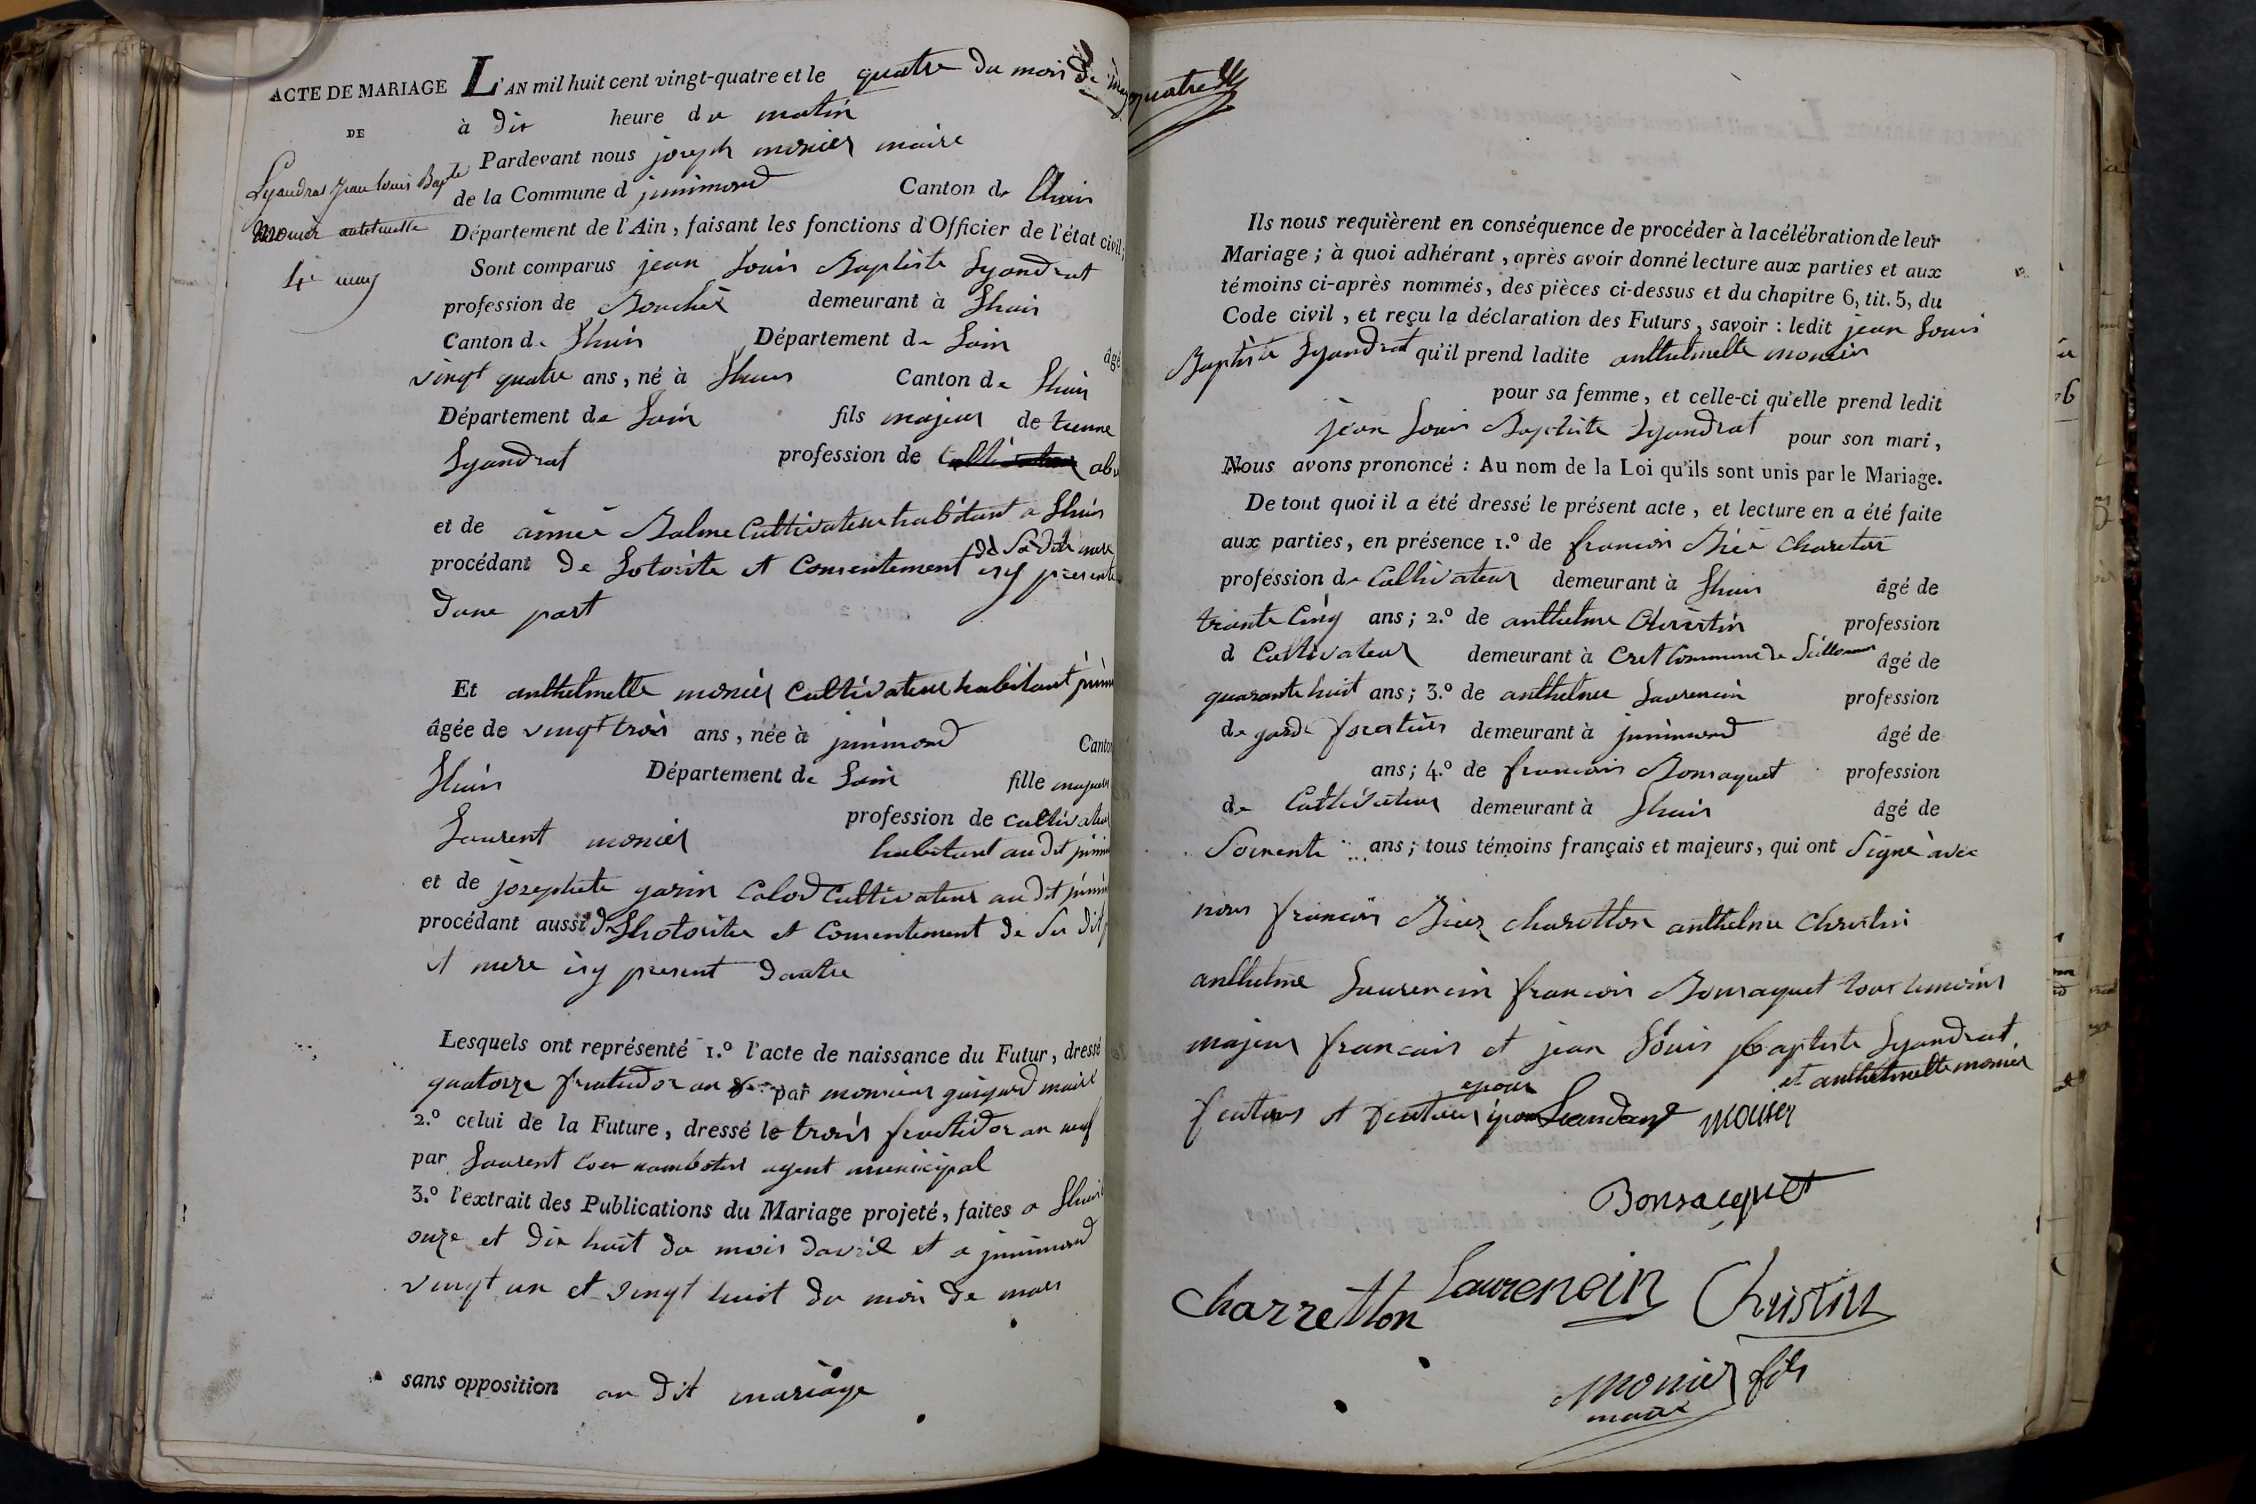 ACTE DE MARIAGE
DE
Lyandrat Jean Louis Bapte
monier antelmette
4e may
L'AN mil huit cent vingt-quatre et le quatre du mois de may
à dix heure du matin
Pardevant nous joseph monier maire
de la Commune d junimond Canton de Lhuis
Département de l'Ain, faisant les fonctions d'Officier de l'état civil;
Sont comparus jean Louis Baptiste Lyandrat
profession de Bouché demeurant à Lhuis
Canton de Lhuis Département de Lain âgé
vingt quatre ans, né à Lhuis Canton de Lhuis
Département de Lain fils majeur de
Lyandrat profession de
et de aimeé Balme Cultivateur habitant a Lhuis
procédant de Lotorite et Consentement de Sadite mere
isy presente
dune part
Et anthelmette monier Cultivateur habitant
âgée de vingt trois ans, née à junimond
Lhuis Département de Lain fille majeur
Laurent monier profession de cultivateur
habitant au dit
et de josephete garin Calod Cultivateur au dit
procédant aussi de Lhotorite et Consentement de Ses dit
et mere isy present dautre
Lesquels ont représenté 1.º l'acte de naissance du Futur, dressé
quatorze frutidor an par monsieur guigard maire
2.º celui de la Future, dressé le trois fructidor an neuf
par Laurent agent municipal
3.º l'extrait des Publications du Mariage projeté, faites a Lhuis
onze et dix huit du mois davril et a junimond
vingt un et vingt huit du mois de mars
sans opposition au dit mariage
quatre
Ils nous requièrent en conséquence de procéder à la célébration de leur
Mariage; à quoi adhérant, après avoir donné lecture aux parties et aux
témoins ci-après nommés, des pièces ci-dessus et du chapitre 6, tit. 5, du
Code civil, et reçu la déclaration des Futurs, savoir: ledit jean Louis
Baptiste Lyandrat qu'il prend ladite anthelmette monier
pour sa femme, et celle-ci qu'elle prend ledit
jean Louis Baptiste Lyandrat pour son mari,
Nous avons prononcé: Au nom de la Loi qu'ils sont unis par le Mariage.
De tout quoi il a été dressé le présent acte, et lecture en a été faite
aux parties, en présence 1.º de francois charetton
profession de Cultivateur demeurant à Lhuis âgé de
trante Cinq ans; 2.º de anthelme Christin profession
d Cultivateur demeurant à Cret Commune de âgé de
quarante huit ans; 3.º de anthelme Laurencin profession
de garde forestier demeurant à junimond âgé de
ans; 4.º de francois Bonsaquet profession
de Cultivateur demeurant à Lhuis âgé de
Soixente ans; tous témoins français et majeurs, qui ont Signé avec
nous francois charetton anthelme Christin
anthelme Laurencin francois Bonsaquet tous temoins
majeur francais et jean Louis Baptiste Lyandrat
et anthelmette monier
futurs et future epoux Leandras monier
Bonsacquet
Charretton Laurencin Christin
monier fils
maire